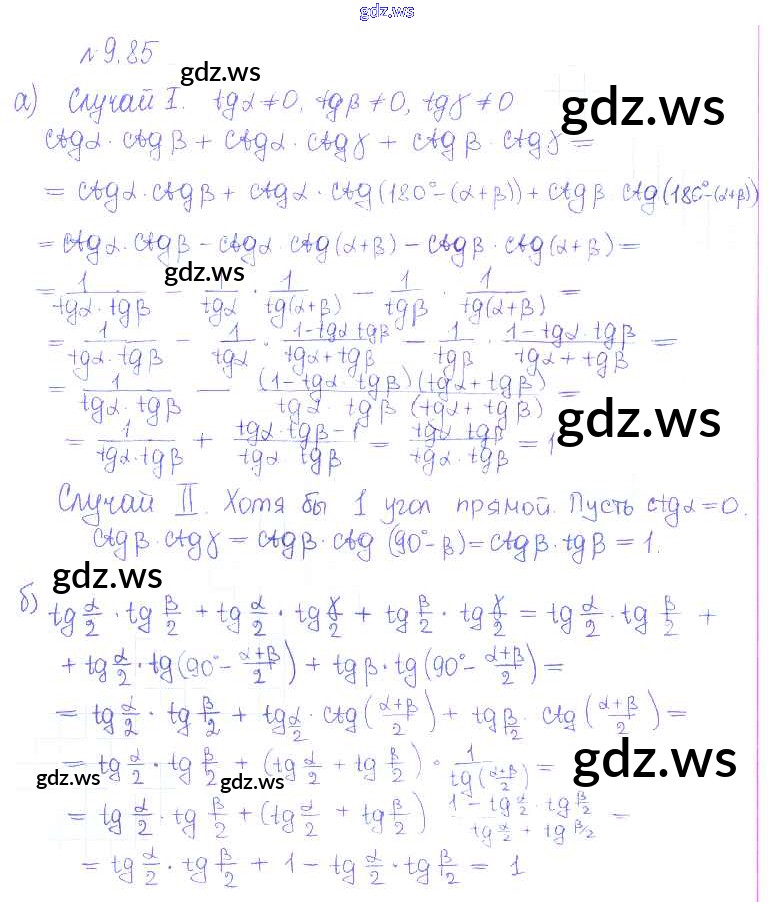 gdz.ws
№9.85
gdz.ws
а) Случай I. tgα ≠ 0, tgβ ≠ 0, tgγ ≠ 0
gdz.ws
ctgα · ctgβ + ctgα · ctgγ + ctgβ · ctgγ =
= ctgα · ctgβ + ctgα · ctg(180° - (α+β)) + ctgβ ctg(180° - (α+β))
= ctgα · ctgβ - ctgα ctg(α+β) - ctgβ · ctg(α+β) =
gdz.ws
= 1/(tgα · tgβ) - 1/tgα · 1/tg(α+β) - 1/tgβ · 1/tg(α+β) =
= 1/(tgα · tgβ) - 1/tgα · (1 - tgα tgβ)/(tgα + tgβ) - 1/tgβ · (1 - tgα · tgβ)/(tgα + tgβ) =
= 1/(tgα · tgβ) - (1 - tgα · tgβ)(tgα + tgβ)/(tgα · tgβ (tgα + tgβ)) =
gdz.ws
= 1/(tgα · tgβ) + (tgα · tgβ - 1)/(tgα tgβ) = (tgα tgβ)/(tgα · tgβ) = 1
Случай II. Хотя бы 1 угол прямой. Пусть ctgα = 0.
ctgβ · ctgγ = ctgβ · ctg(90° - β) = ctgβ · tgβ = 1.
gdz.ws
б) tg α/2 · tg β/2 + tg α/2 · tg γ/2 + tg β/2 · tg γ/2 = tg α/2 · tg β/2 +
+ tg α/2 · tg(90° - (α+β)/2) + tgβ · tg(90° - (α+β)/2) =
= tg α/2 · tg β/2 + tg α/2 · ctg((α+β)/2) + tg β/2 · ctg((α+β)/2) =
gdz.ws
= tg α/2 · tg β/2 + (tg α/2 + tg β/2) · 1/tg((α+β)/2) =
gdz.ws
gdz.ws
= tg α/2 · tg β/2 + (tg α/2 + tg β/2) (1 - tg α/2 · tg β/2)/(tg α/2 + tg β/2) =
= tg α/2 · tg β/2 + 1 - tg α/2 · tg β/2 = 1